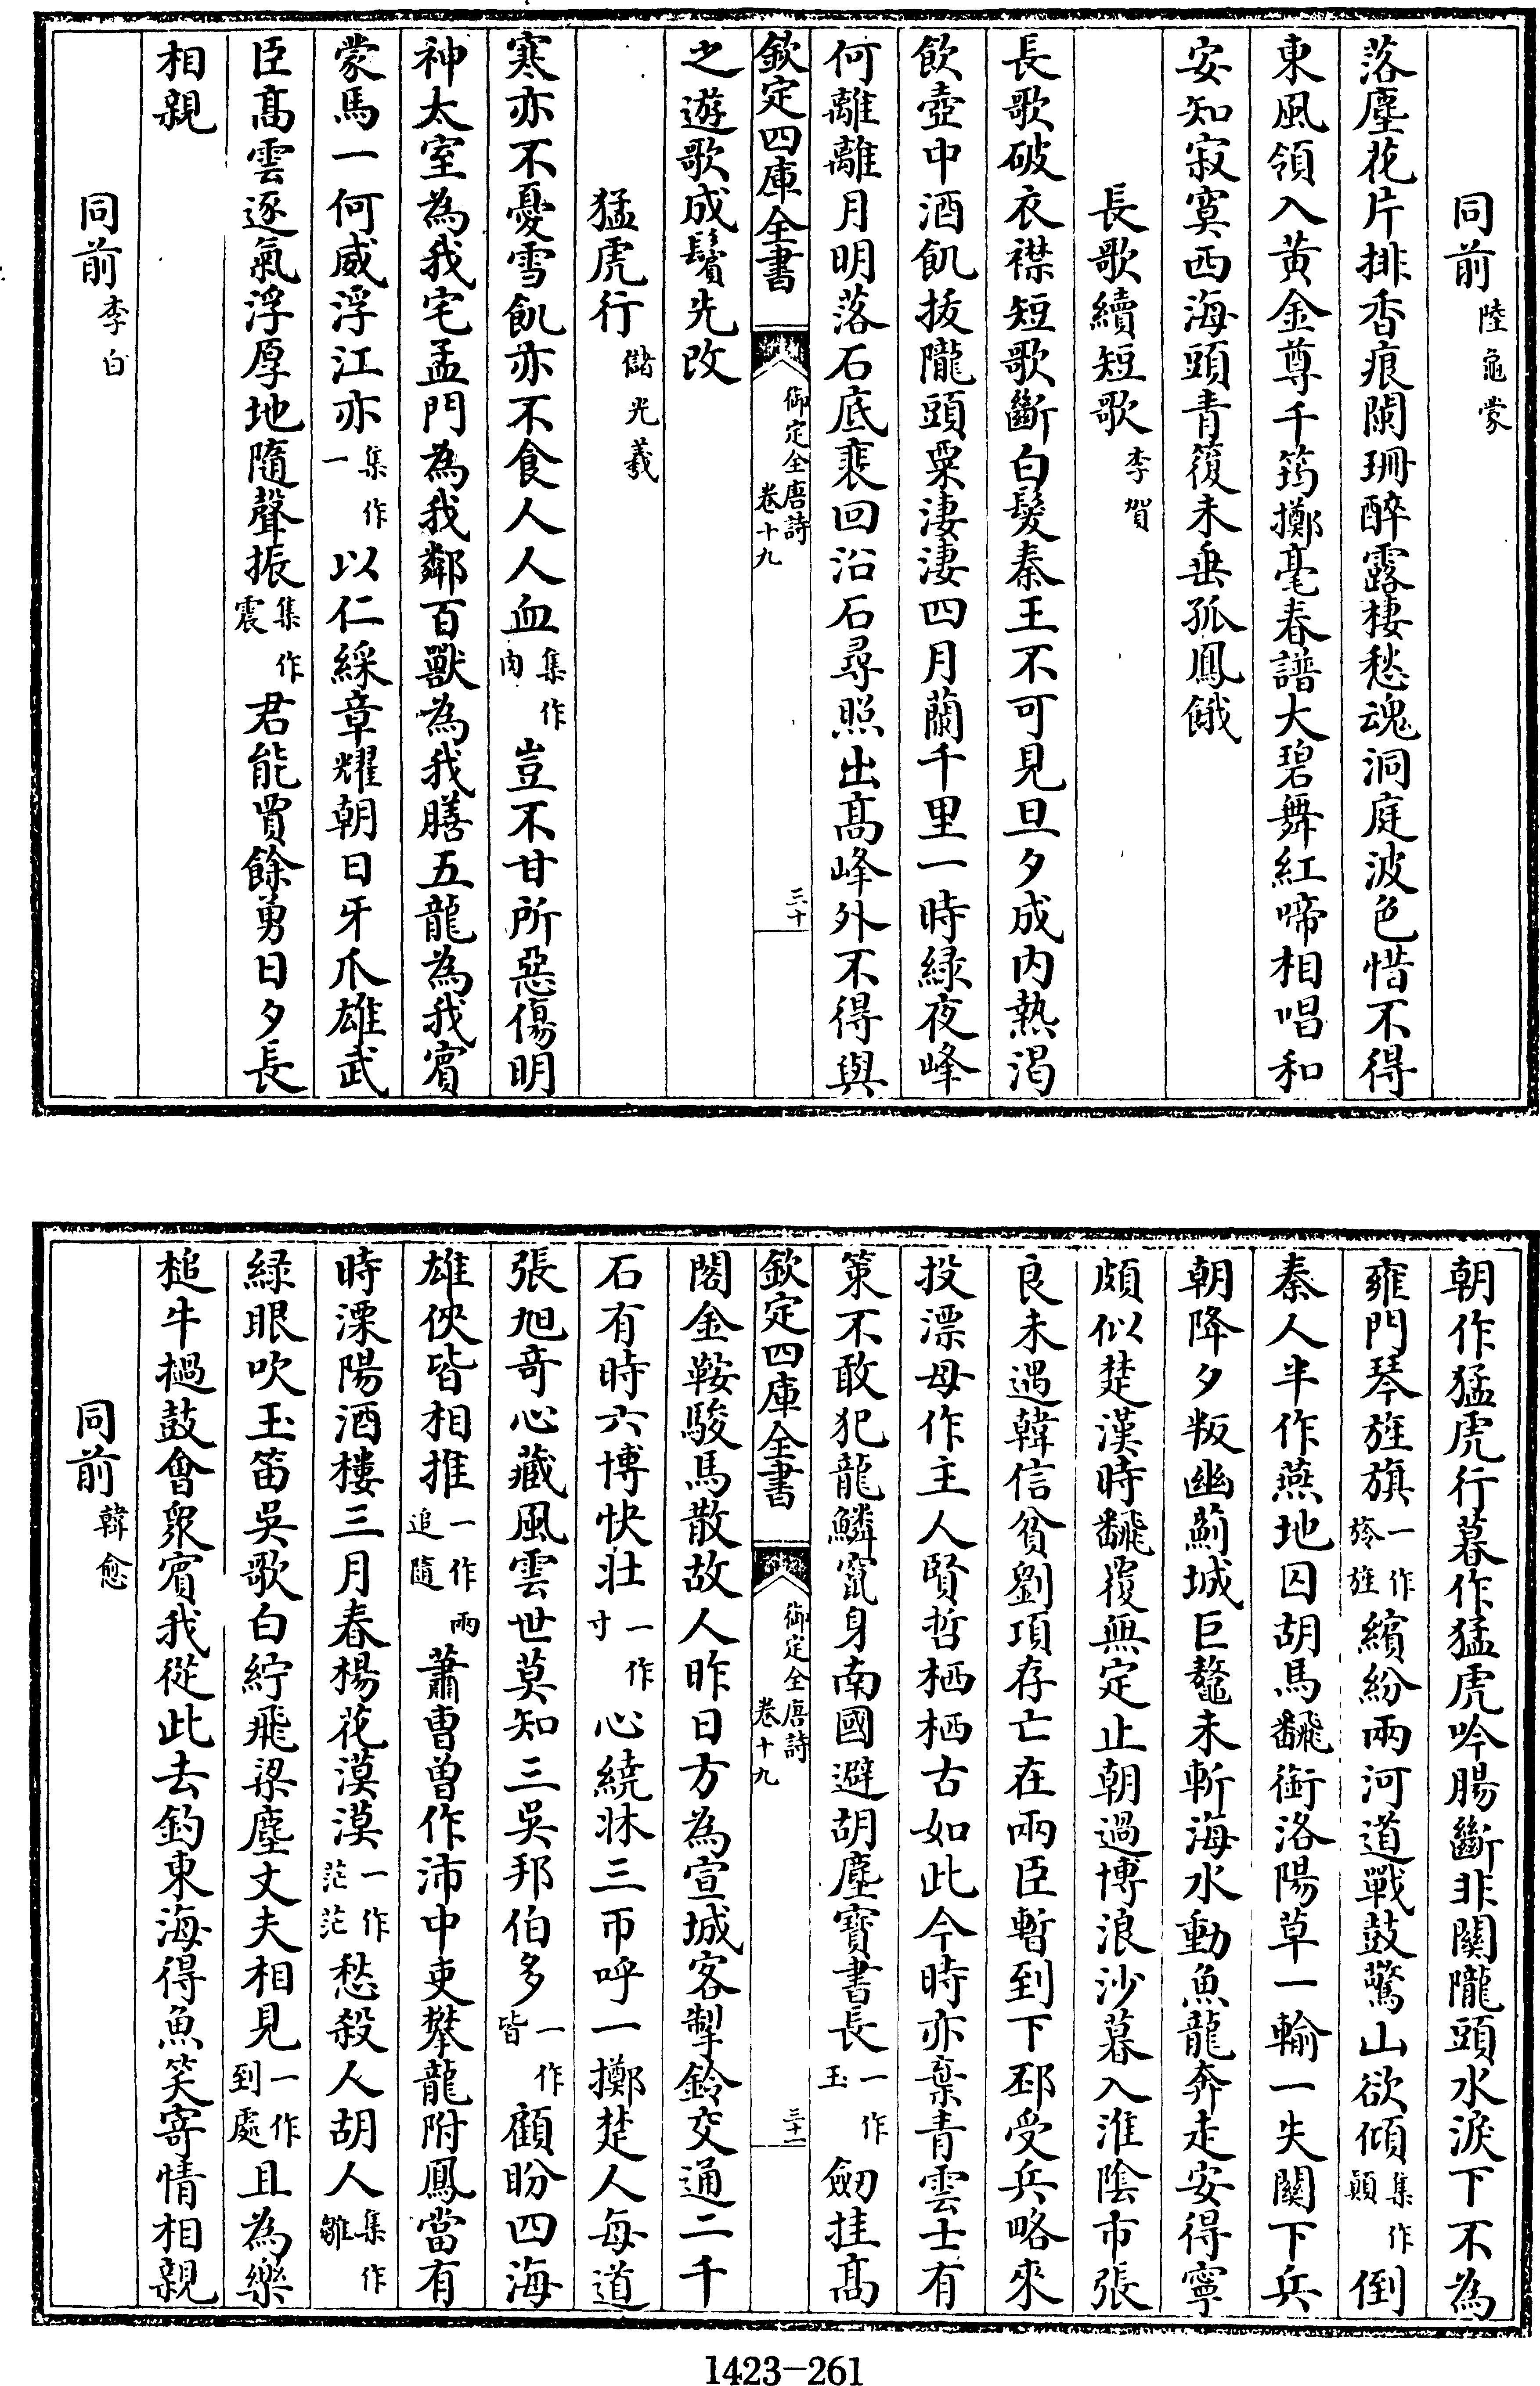 同前陸龜蒙
落塵花片排香痕闌珊醉露棲愁魂洞庭波色惜不得
東風領入黃金尊千筠擲毫春譜大碧舞紅啼相唱和
安知寂寞西海頭青篛未垂孤鳳餓
長歌續短歌李賀
長歌破衣襟短歌斷白髪秦王不可見旦夕成内熱渴
飲壺中酒飢拔隴頭粟淒淒四月蘭千里一時緑夜峰
何離離月明落石底裴回沿石尋照出髙峰外不得與
欽定四庫全書 御定全唐詩卷十九 三十
之遊歌成鬢先改
猛虎行儲光羲
寒亦不憂雪飢亦不食人人血集作肉豈不甘所惡傷明
神太室為我宅孟門為我鄰百獸為我膳五龍為我賓
蒙馬一何威浮江亦集作一以仁綵章耀朝日牙爪雄武
臣髙雲逐氣浮厚地隨聲振集作震君能賈餘勇日夕長
相親
同前李白
朝作猛虎行暮作猛虎吟腸斷非關隴頭水淚下不為
雍門琴旌旗一作旍旌繽紛兩河道戰鼓驚山欲傾集作顛倒
秦人半作燕地囚胡馬飜銜洛陽草一輸一失關下兵
朝降夕叛幽薊城巨鼇未斬海水動魚龍奔走安得寧
頗似楚漢時飜覆無定止朝過博浪沙暮入淮陰市張
良未遇韓信貧劉項存亡在兩臣暫到下邳受兵略來
投漂母作主人賢哲栖栖古如此今時亦棄青雲士有
策不敢犯龍鱗竄身南國避胡塵寳書長一作玉劒挂髙
欽定四庫全書 御定全唐詩卷十九 三十一
閣金鞍駿馬散故人昨日方為宣城客掣鈴交通二千
石有時六博快壯一作寸心繞牀三帀呼一擲楚人每道
張旭奇心藏風雲世莫知三吳邦伯多一作皆顧盼四海
雄俠皆相推一作兩追隨蕭曹曽作沛中吏攀龍附鳳當有
時溧陽酒樓三月春楊花漠漠一作茫茫愁殺人胡人集作雛
緑眼吹玉笛吳歌白紵飛梁塵丈夫相見一作到處且為樂
槌牛撾鼓會衆賓我從此去釣東海得魚笑寄情相親
同前韓愈
1423-261